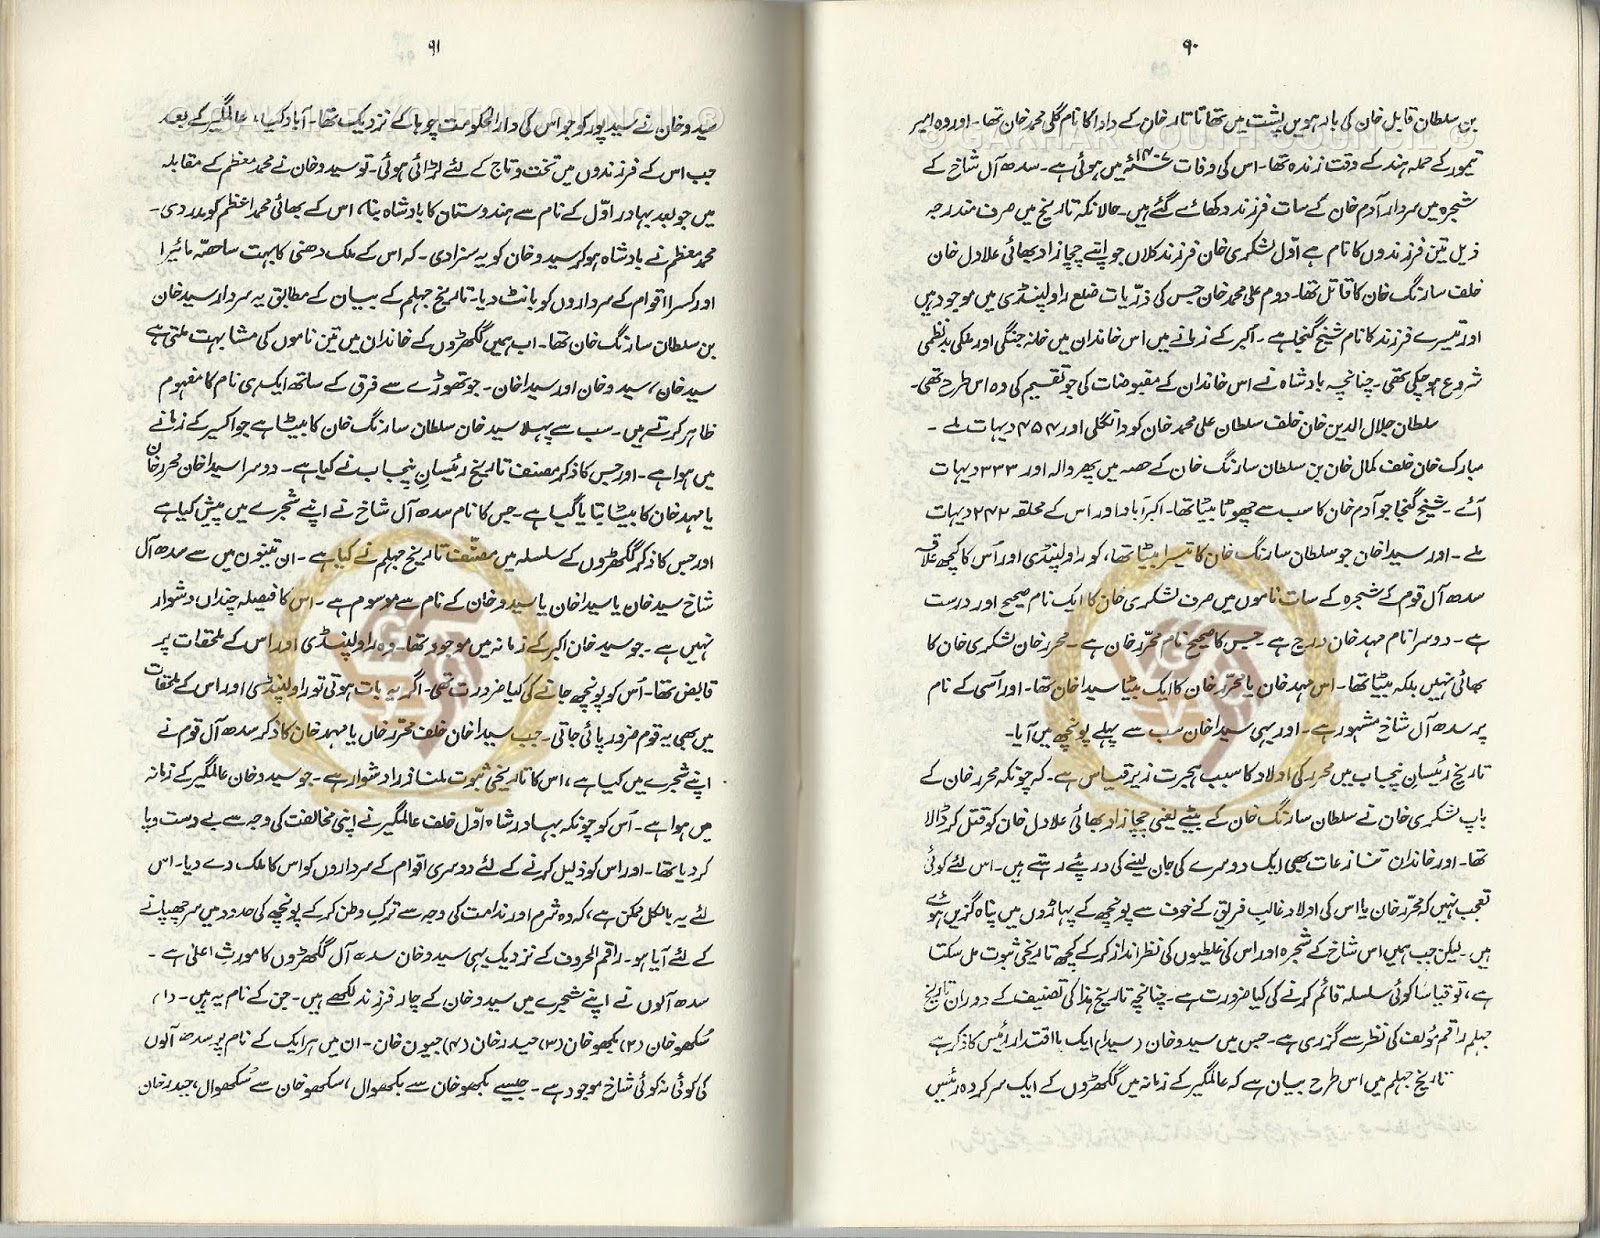 ۹۰
بن سلطان قابل خان کی بارہویں پشت میں تھا تاتار خان کے دادا کا نام گلی محمد خان تھا۔ اور وہ امیر
تیمور کے حملہ ہند کے وقت زندہ تھا۔ اس کی وفات ۱۴۰۷ء میں ہوئی ہے۔ سدھ آل شاخ کے
شجرہ میں سردار آدم خان کے سات فرزند دکھائے گئے ہیں۔ حالانکہ تاریخ میں صرف مندرجہ
ذیل تین فرزندوں کا نام ہے اوّل لشکری خان فرزند کلاں جو اپنے چچا زاد بھائی علاول خان
خلف سارنگ خان کا قاتل تھا۔ دوم علی محمد خان جس کی ذرّیات ضلع راولپنڈی میں موجود ہیں
اور تیسرے فرزند کا نام شیخ گنجا ہے۔ اکبر کے زمانے میں اس خاندان میں خانہ جنگی اور ملکی بدنظمی
شروع ہو چکی تھی۔ چنانچہ بادشاہ نے اس خاندان کے مقبوضات کی جو تقسیم کی وہ اس طرح تھی۔
سلطان جلال الدین خان خلف سلطان علی محمد خان کو دانگلی اور ۴۵۴ دیہات ملے۔
مبارک خان خلف کمال خان بن سلطان سارنگ خان کے حصہ میں پھروالہ اور ۳۳۳ دیہات
آئے۔ شیخ گنجا جو آدم خان کا سب سے چھوٹا بیٹا تھا۔ اکبرآباد اور اس کے ملحقہ ۲۴۲ دیہات
ملے۔ اور سیدا خان جو سلطان سارنگ خان کا تیسرا بیٹا تھا، کو راولپنڈی اور اُس کا کچھ علاقہ
سدھ آل قوم کے شجرہ کے سات ناموں میں صرف لشکری خان کا ایک نام صحیح اور درست
ہے۔ دوسرا نام مہد خان درج ہے۔ جس کا صحیح نام محرّر خان ہے۔ محرر خان لشکری خان کا
بھائی نہیں بلکہ بیٹا تھا۔ اس مہد خان یا محرّر خان کا ایک بیٹا سیدا خان تھا۔ اور اُسی کے نام
پر سدھ آل شاخ مشہور ہے۔ اور یہی سیدا خان سب سے پہلے پونچھ میں آیا۔
تاریخ رئیسانِ پنجاب میں محرر کی اولاد کا سبب ہجرت زیر قیاس ہے۔ کہ چونکہ محرر خان کے
باپ لشکری خان نے سلطان سارنگ خان کے بیٹے یعنی چچا زاد بھائی علاول خان کو قتل کر ڈالا
تھا۔ اور خاندان تنازعات بھی ایک دوسرے کی جان لینے کی درپئے رہتے ہیں۔ اس لئے کوئی
تعجب نہیں کہ محرّر خان یا اس کی اولاد غالب فریق کے خوف سے پونچھ کے پہاڑوں میں پناہ گزیں ہوئے
ہیں۔ لیکن جب ہمیں اس شاخ کے شجرہ اور اس کی غلطیوں کی نظر انداز کر کے کچھ تاریخی ثبوت مل سکتا
ہے، تو قیاساً کوئی سلسلہ قائم کرنے کی کیا ضرورت ہے۔ چنانچہ تاریخ ہذا کی تصنیف کے دوران تاریخ
جہلم راقم مؤلف کی نظر سے گزری ہے۔ جس میں سیدو خان (سیدا) ایک با اقتدار رئیس کا ذکر ہے
تاریخ جہلم میں اس طرح بیان ہے کہ عالمگیر کے زمانہ میں گکھڑوں کے ایک سرکردہ رئیس
۹۱
سیدو خان نے سیدپور کو جو اس کی دارالحکومت چوہا کے نزدیک تھا۔ آباد کیا، عالمگیر کے بعد
جب اس کے فرزندوں میں تخت و تاج کے لئے لڑائی ہوئی۔ تو سیدو خان نے محمد معظم کے مقابلہ
میں جو بعد بہادر اوّل کے نام سے ہندوستان کا بادشاہ بنا، اس کے بھائی محمد اعظم کو مدد دی۔
محمد معظم نے بادشاہ ہو کر سیدو خان کو یہ سزا دی۔ کہ اس کے ملک دھنی کا بہت سا حصّہ مائیرا
اور کسرا اقوام کے سرداروں کو بانٹ دیا۔ تاریخ جہلم کے بیان کے مطابق یہ سردار سید خان
بن سلطان سارنگ خان تھا۔ اب ہمیں گکھڑوں کے خاندان میں تین ناموں کی مشابہت ملتی ہے
سید خان، سیدو خان اور سیدا خان۔ جو تھوڑے سے فرق کے ساتھ ایک ہی نام کا مفہوم
ظاہر کرتے ہیں۔ سب سے پہلا سید خان سلطان سارنگ خان کا بیٹا ہے جو اکبر کے زمانے
میں ہوا ہے۔ اور جس کا ذکر مصنف تاریخ رئیسانِ پنجاب نے کیا ہے۔ دوسرا سیدا خان محرر خان
یا مہد خان کا بیٹا بتایا گیا ہے۔ جس کا نام سدھ آل شاخ نے اپنے شجرے میں پیش کیا ہے
اور جس کا ذکر گکھڑوں کے سلسلہ میں مصنّف تاریخ جہلم نے کیا ہے۔ ان تینوں میں سے سدھ آل
شاخ سید خان یا سیدا خان یا سیدو خان کے نام سے موسوم ہے۔ اس کا فیصلہ چنداں دشوار
نہیں ہے۔ جو سید خان اکبر کے زمانہ میں موجود تھا۔ وہ راولپنڈی اور اس کے ملحقات پر
قابض تھا۔ اُس کو پونچھ جانے کی کیا ضرورت تھی۔ اگر یہ بات ہوتی تو راولپنڈی اور اس کے ملحقات
میں بھی یہ قوم ضرور پائی جاتی۔ جب سیدا خان خلف محرّر خاں یا مہد خان کا ذکر سدھ آل قوم نے
اپنے شجرے میں کیا ہے، اس کا تاریخی ثبوت ملنا ذرا دشوار ہے۔ جو سیدو خان عالمگیر کے زمانہ
میں ہوا ہے۔ اُس کو چونکہ بہادر شاہ اوّل خلف عالمگیر نے اپنی مخالفت کی وجہ سے بے دست و پا
کر دیا تھا۔ اور اس کو ذلیل کرنے کے لئے دوسری اقوام کے سرداروں کو اس کا ملک دے دیا۔ اس
لئے یہ بالکل ممکن ہے، کہ وہ شرم اور ندامت کی وجہ سے ترکِ وطن کر کے پونچھ کی حدود میں سر چھپانے
کے لئے آیا ہو۔ راقم الحروف کے نزدیک یہی سیدو خان سدھ آل گکھڑوں کا مورث اعلیٰ ہے۔
سدھ آلوں نے اپنے شجرے میں سیدو خان کے چار فرزند لکھے ہیں۔ جن کے نام یہ ہیں۔ (۱)
سُکھو خان (۲) بکھو خان (۳) حیدر خان (۴) جیون خان۔ ان میں ہر ایک کے نام پر سدھ آلوں
کی کوئی نہ کوئی شاخ موجود ہے۔ جیسے بکھو خان سے بکھوال، سکھو خان سے سُکھوال، حیدر خان